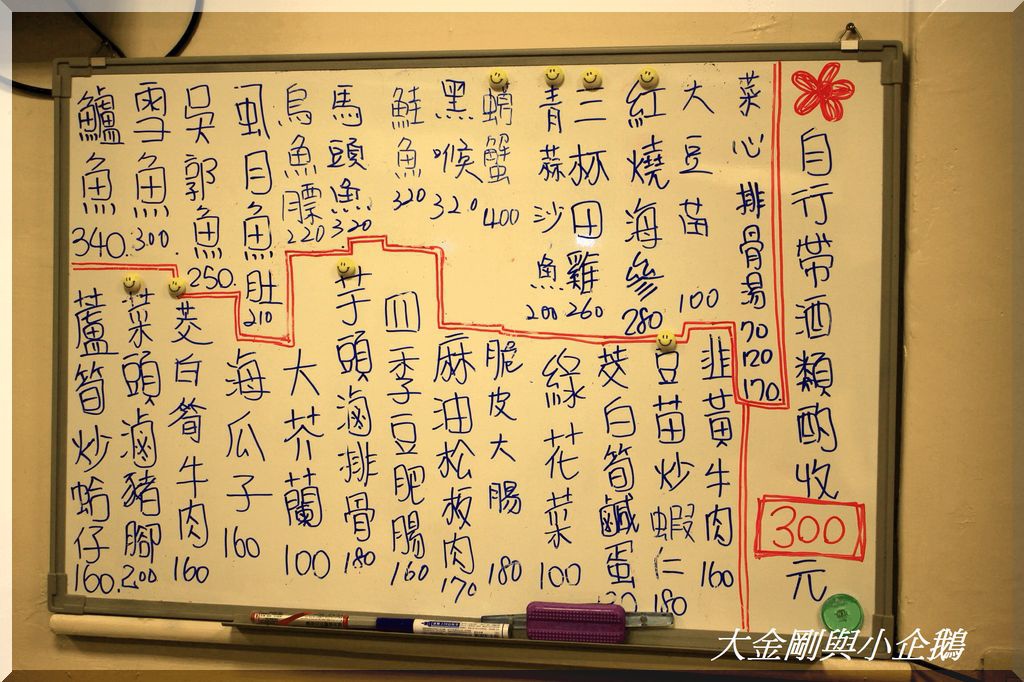 自行帶酒類酌收300元
菜心排骨湯 70 120 170.
大豆苗 100
紅燒海參 280
三杯田雞 260
青蒜沙魚 200
螃蟹 400
黑喉 320
鮭魚 320
馬頭魚 320
烏魚膘 220
虱目魚肚 210
吳郭魚 250.
雪魚 300.
鱸魚 340.
韭黃牛肉 160
豆苗炒蝦仁 180
茭白筍鹹蛋
綠花菜 100
脆皮大腸 180
麻油松板肉 170
四季豆肥腸 160
芋頭滷排骨 180
大芥蘭 100
海瓜子 160
茭白筍牛肉 160
菜頭滷豬腳 200
蘆筍炒蛤仔 160.
大金剛與小企鵝